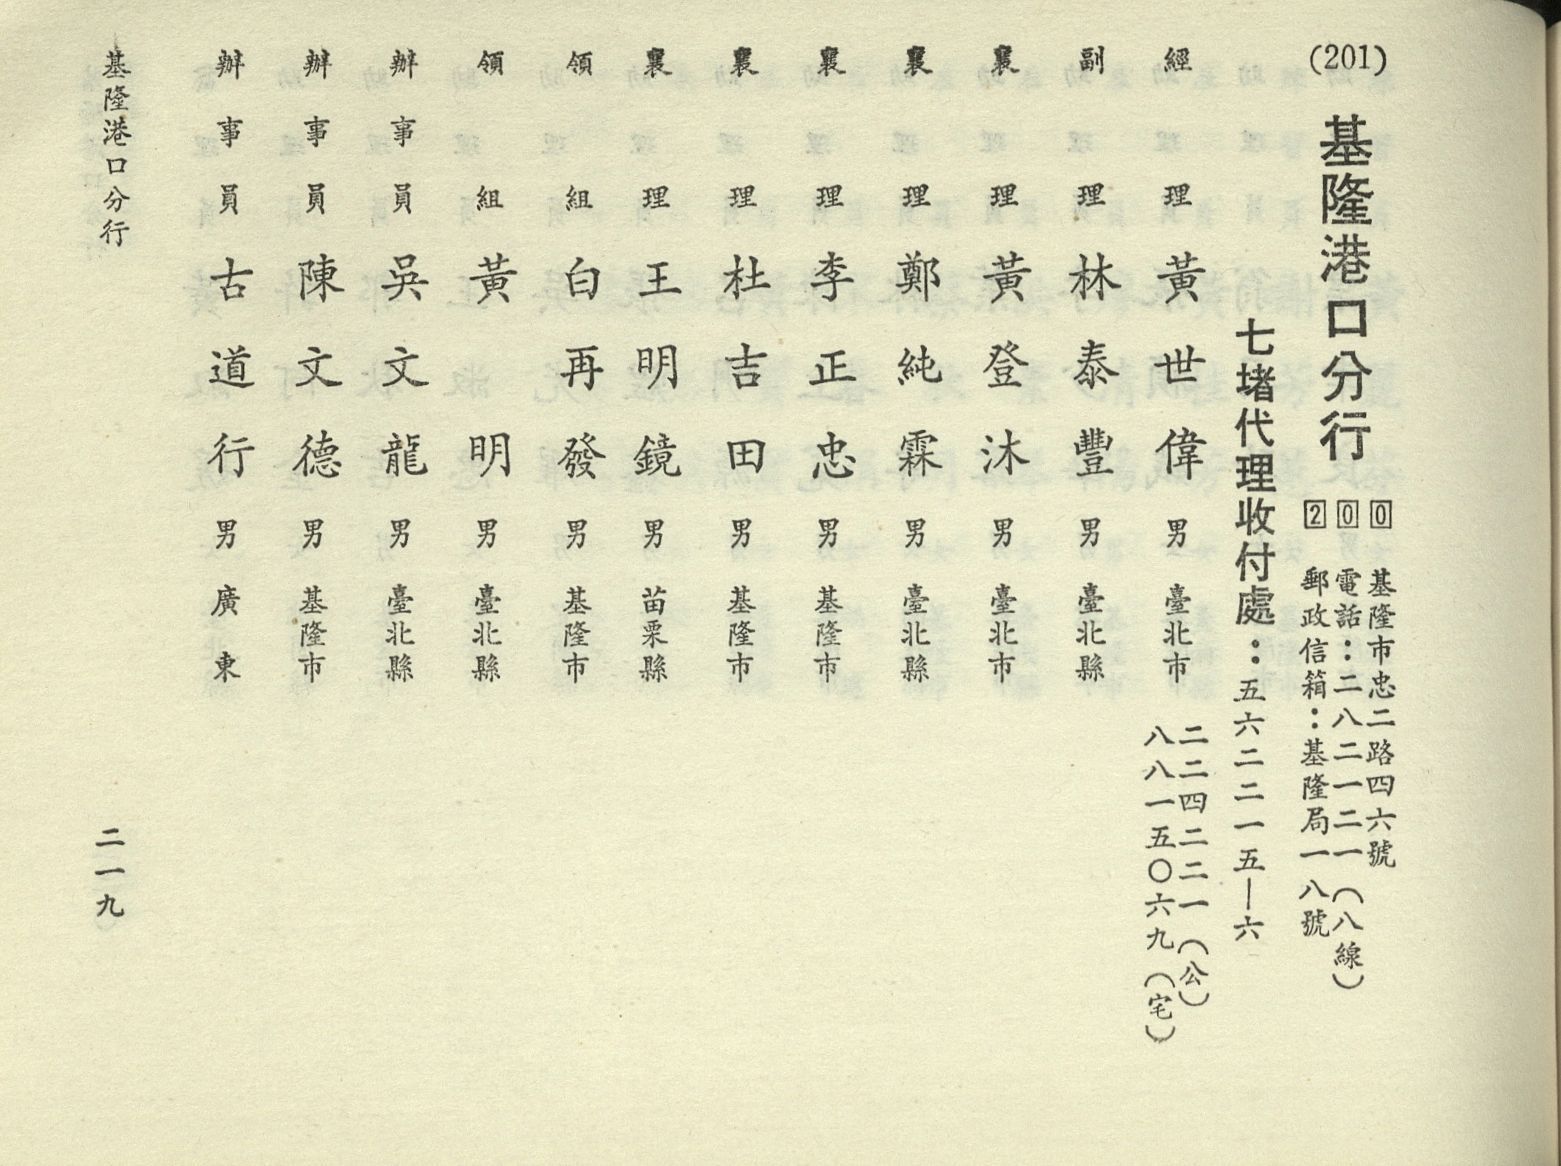 (201)
基隆港口分行
200
基隆市忠二路四六號
電話：二八二一二一（八線）
郵政信箱：基隆局一八號
七堵代理收付處：五六二二一五—六
經理 黃世偉 男 臺北市 二二四二二一（公）
八八一五〇六九（宅）
副理 林泰豐 男 臺北縣
襄理 黃登沐 男 臺北市
襄理 鄭純霖 男 臺北縣
襄理 李正忠 男 基隆市
襄理 杜吉田 男 基隆市
襄理 王明鏡 男 苗栗縣
領組 白再發 男 基隆市
領組 黃明 男 臺北縣
辦事員 吳文龍 男 臺北縣
辦事員 陳文德 男 基隆市
辦事員 古道行 男 廣東
基隆港口分行
二一九